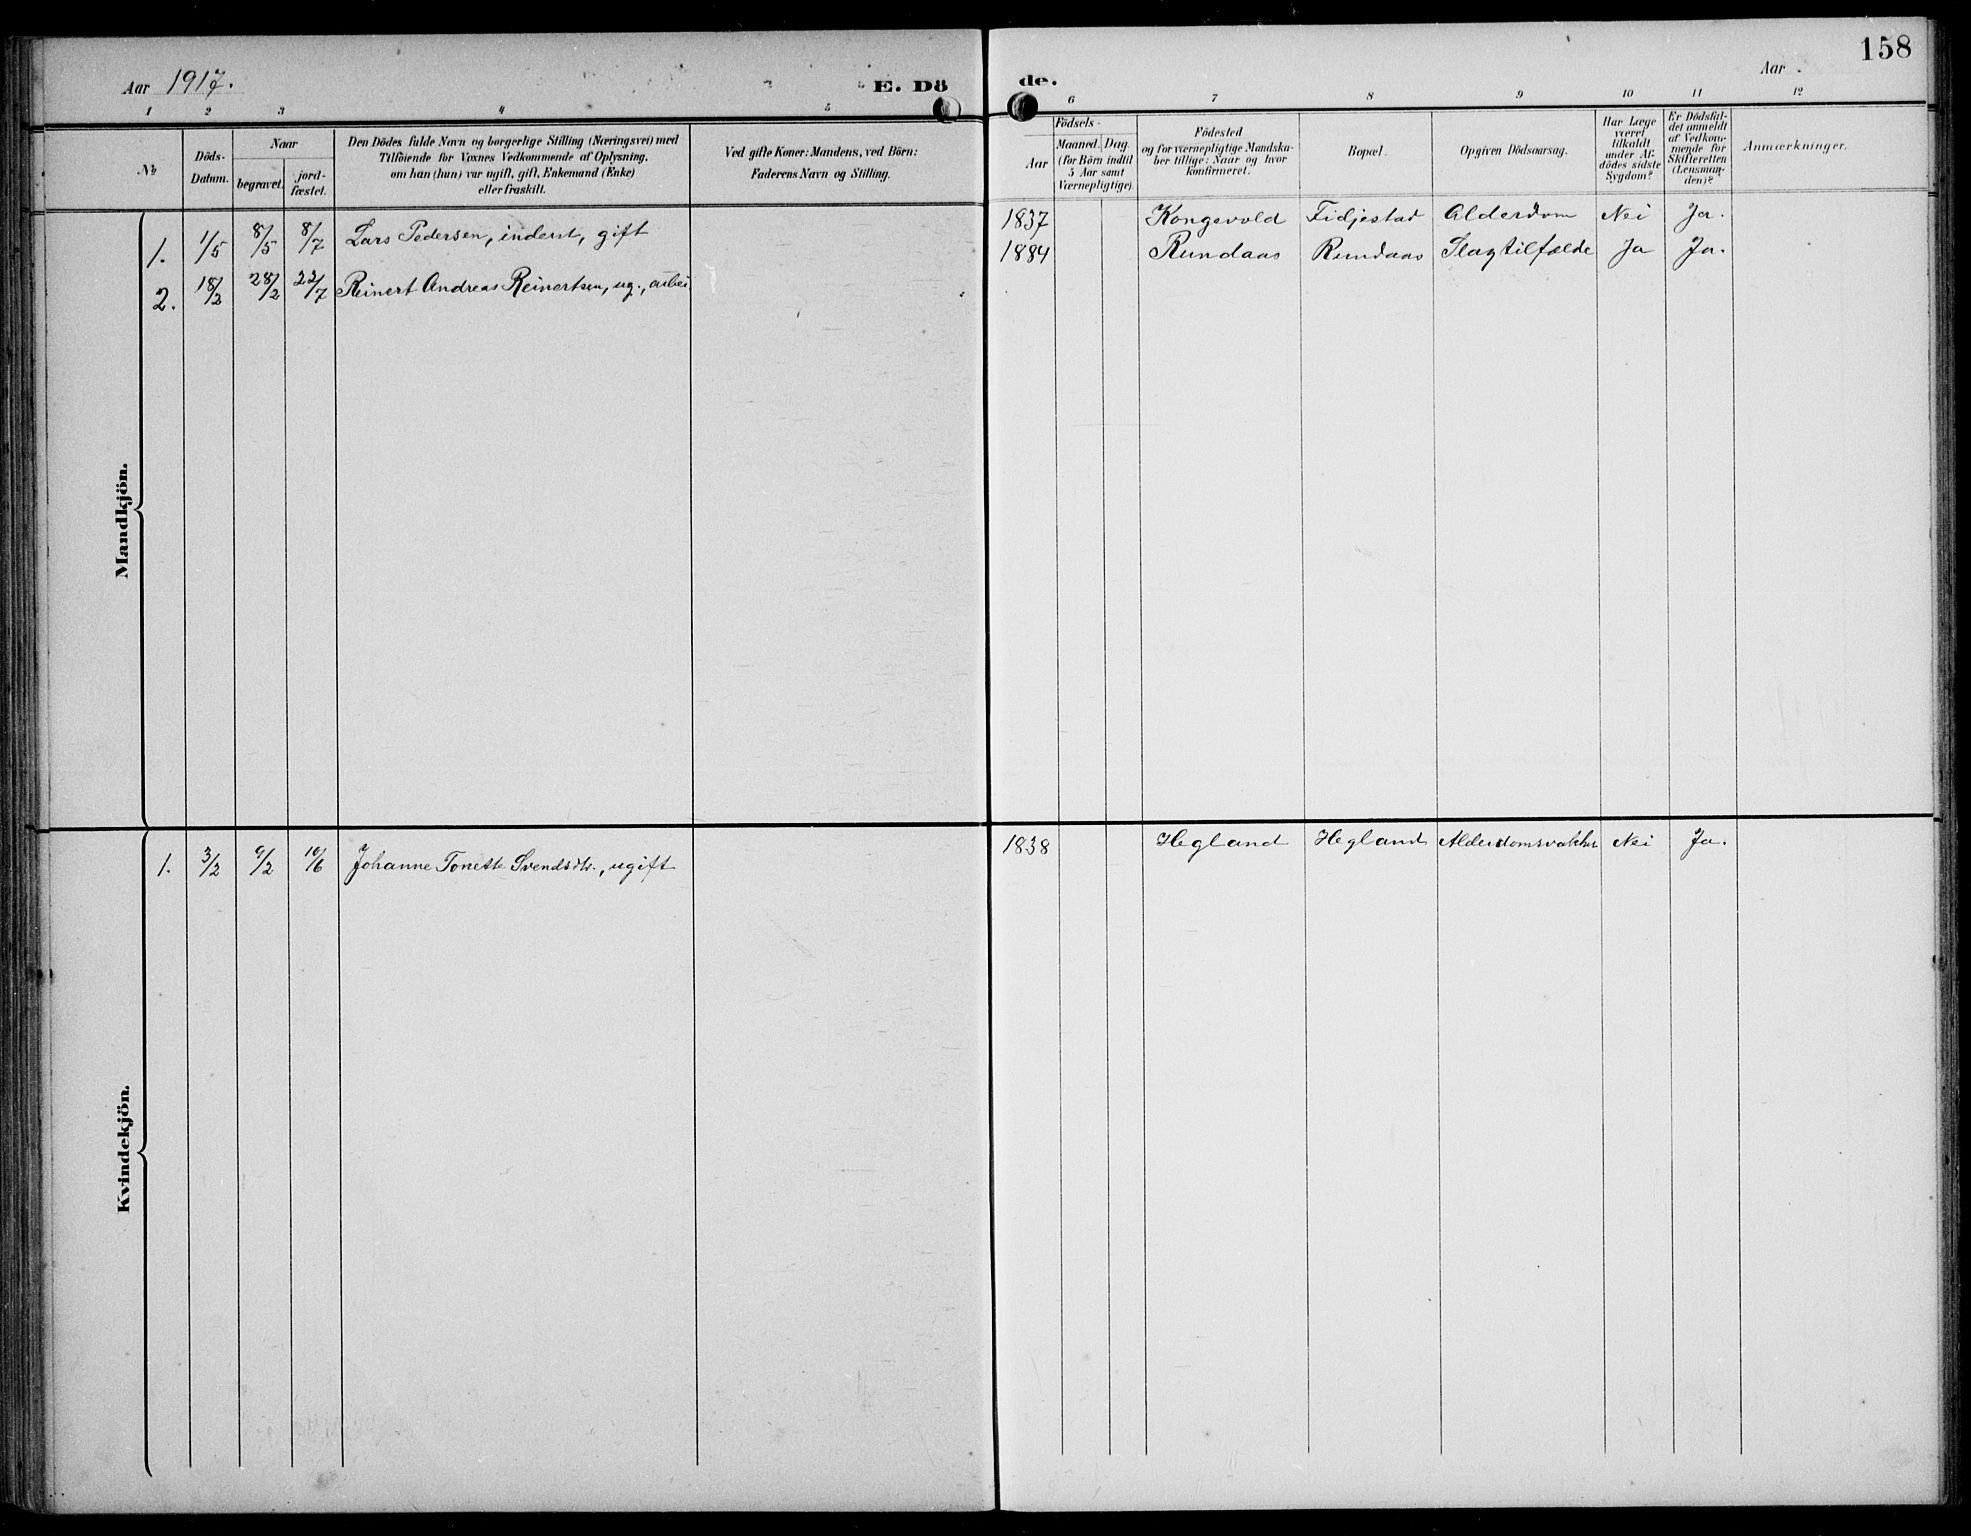 158
Aar 1917.
E. Dö
de.
Aar
1 2 3 4 5
6 7 8 9 10 11 12
No
Döds-
Datum.
Naar
begravet.
jord-
fæstet.
Den Dödes fulde Navn og borgerlige Stilling (Næringsvei) med
Tilföiende for Voxnes Vedkommende af Oplysning,
om han (hun) var ugift, gift, Enkemand (Enke)
eller fraskilt.
Ved gifte Koner: Mandens, ved Börn:
Faderens Navn og Stilling.
Födsels-
Aar
Maaned. Dag.
(for Börn indtil
5 Aar samt
Værnepligtige).
Födested
og for værnepligtige Mandska-
ber tillige: Naar og hvor
konfirmeret.
Bopæl.
Opgiven Dödsaarsag.
Har Læge
været
tilkaldt
under Af-
dödes sidste
Sygdom?
Er Dödsfal-
det anmeldt
af Vedkom-
mende for
Skifteretten
(Lensman-
den)?
Anmærkninger.
Mandkjön.
1. 1/5 8/5 8/7 Lars Pedersen, inderst, gift 1837 Kongevold Fidjestad Alderdom Nei Ja.
2. 18/2 28/2 22/7 Reinert Andreas Reinertsen, ug., arbei. 1884 Rundaas Rundaas Slagtilfælde Ja Ja.
Kvindekjön.
1. 3/2 9/2 10/6 Johanne Tonette Svendsdtr., ugift 1838 Hegland Hegland Nei Ja.